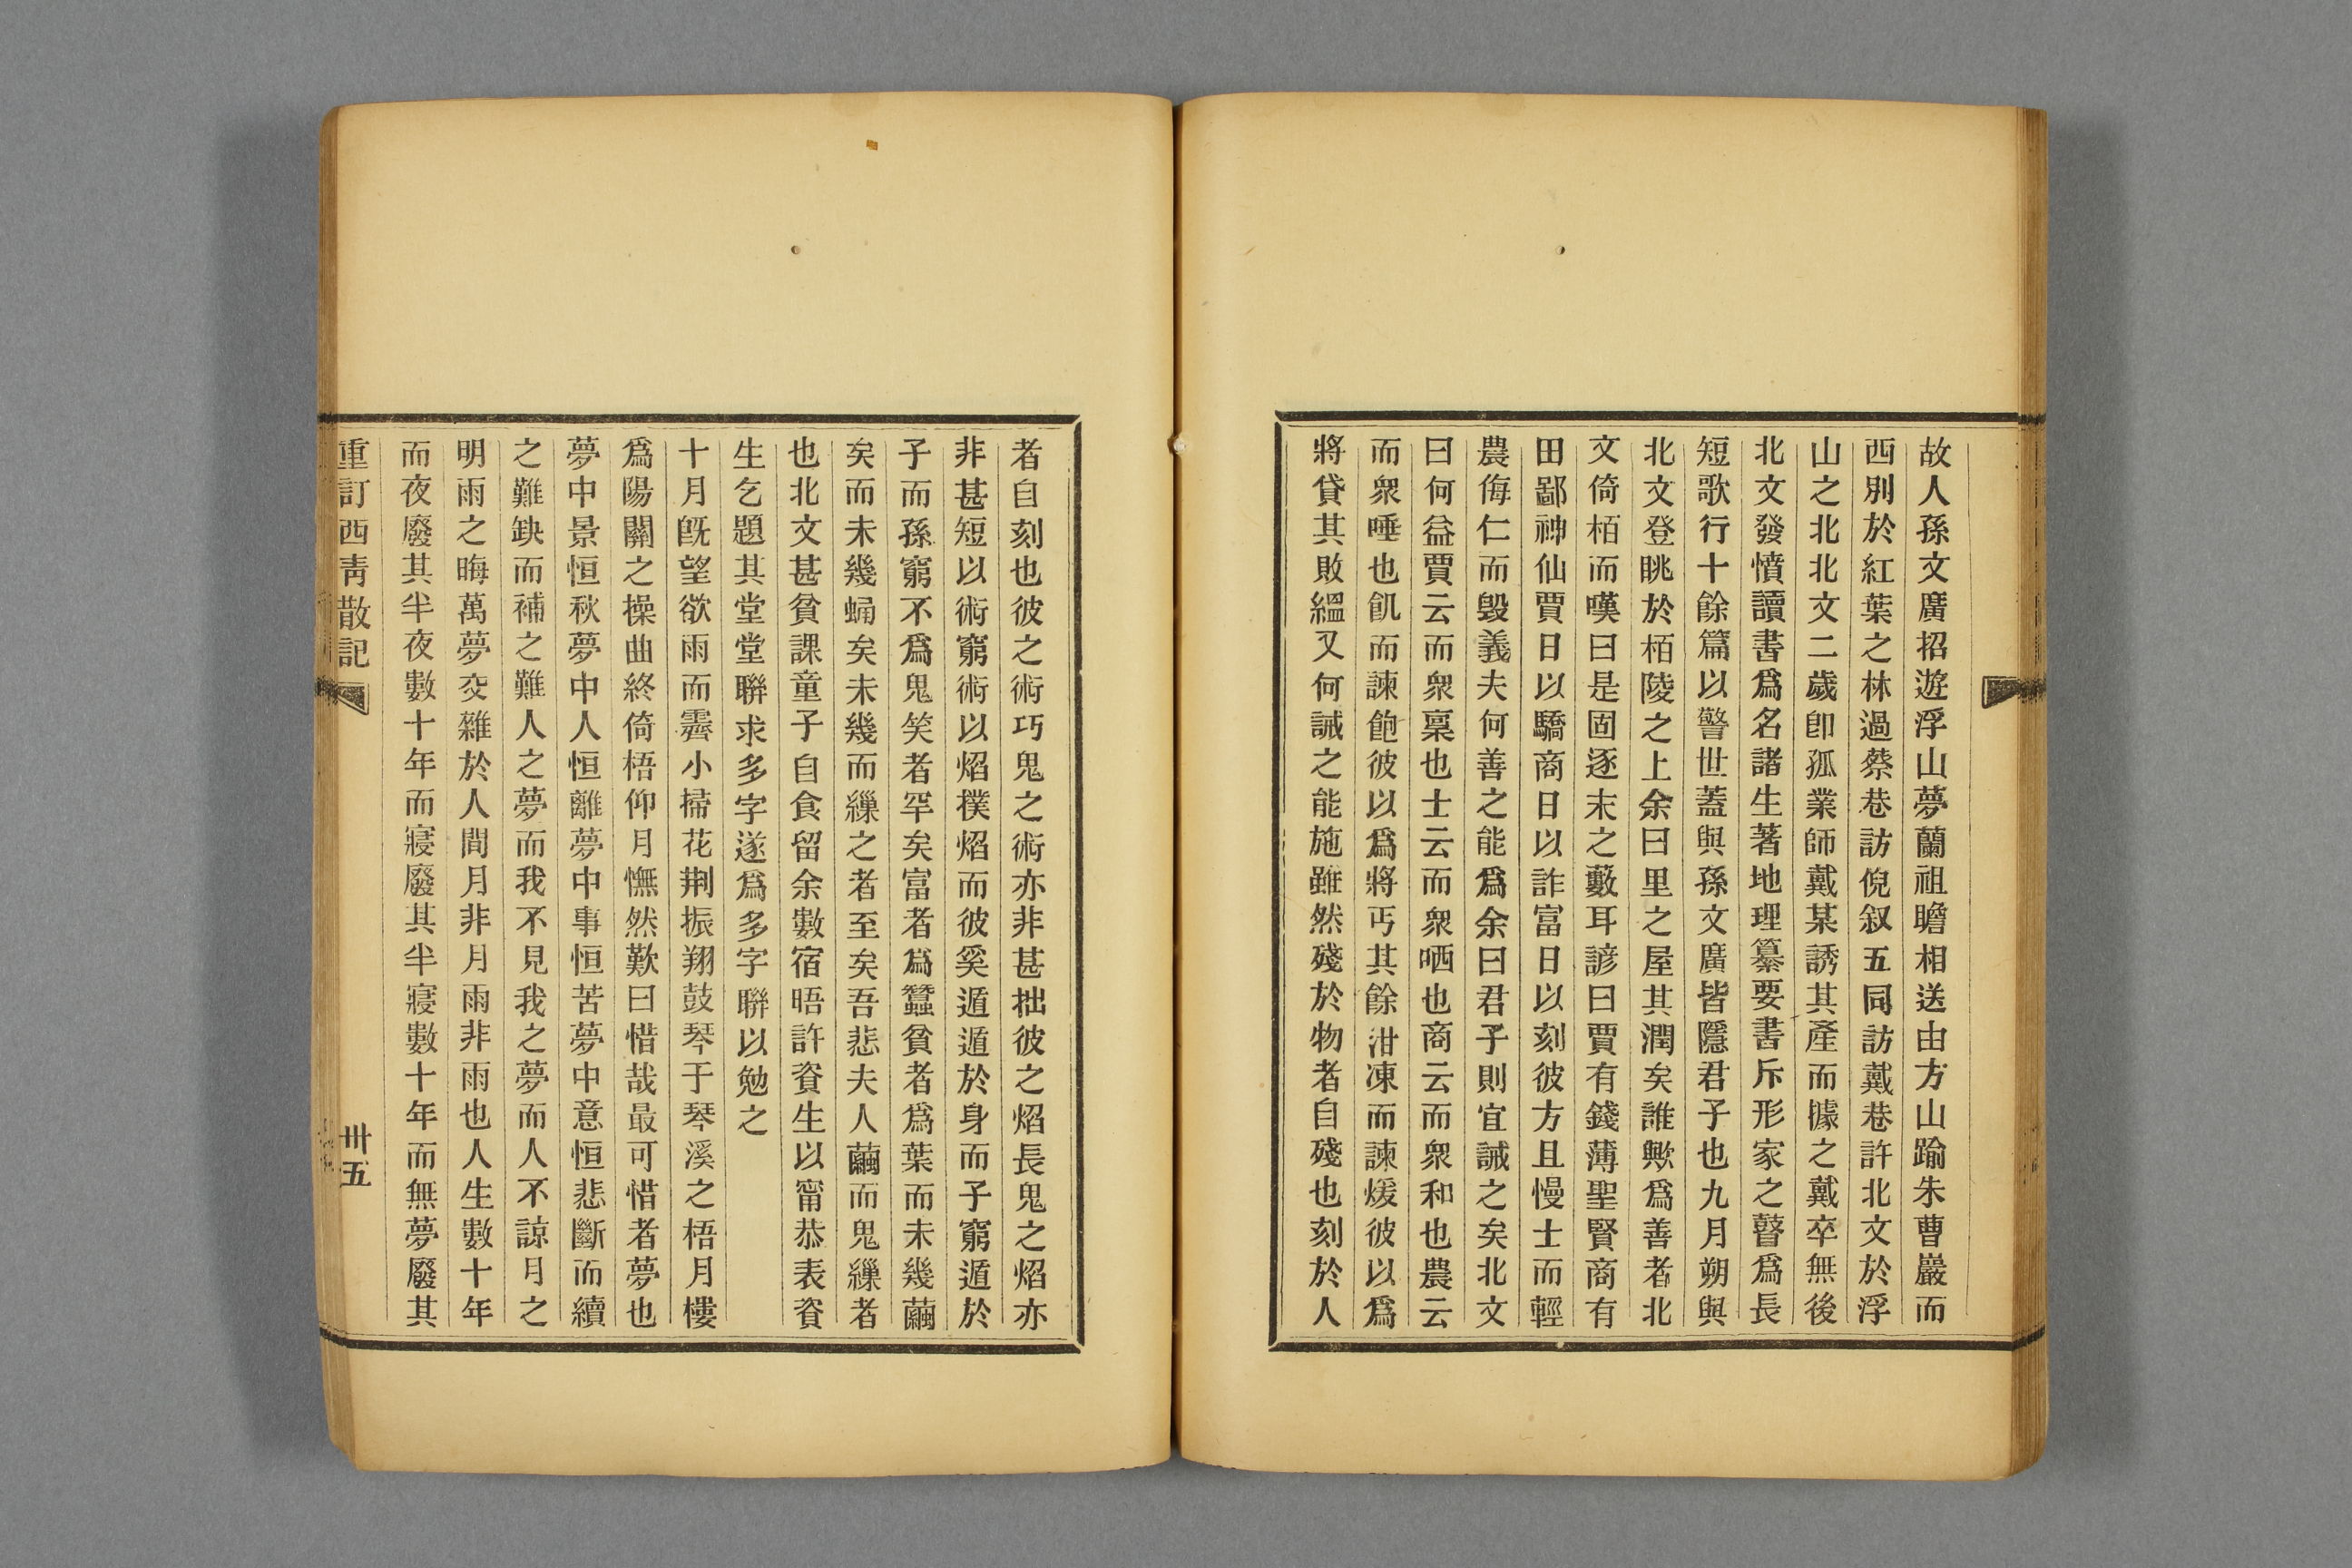 故人孫文廣招遊浮山夢蘭祖瞻相送由方山踰朱曹巖而
西別於紅葉之林過蔡巷訪倪叙五同訪戴巷許北文於浮
山之北北文二歲卽孤業師戴某誘其產而據之戴卒無後
北文發憤讀書爲名諸生著地理纂要書斥形家之瞽爲長
短歌行十餘篇以警世蓋與孫文廣皆隱君子也九月朔與
北文登眺於栢陵之上余曰里之屋其潤矣誰歟爲善者北
文倚栢而嘆曰是固逐末之藪耳諺曰賈有錢薄聖賢商有
田鄙神仙賈日以驕商日以詐富日以刻彼方且慢士而輕
農侮仁而毀義夫何善之能爲余曰君子則宜誡之矣北文
曰何益賈云而衆稟也士云而衆哂也商云而衆和也農云
而衆唾也飢而諫飽彼以爲將丐其餘泔凍而諫煖彼以爲
將貸其敗縕又何誡之能施雖然殘於物者自殘也刻於人
者自刻也彼之術巧鬼之術亦非甚拙彼之焰長鬼之焰亦
非甚短以術窮術以焰撲焰而彼奚遁遁於身而子窮遁於
子而孫窮不爲鬼笑者罕矣富者爲蠶貧者爲葉而未幾繭
矣而未幾蛹矣未幾而繅之者至矣吾悲夫人繭而鬼繅者
也北文甚貧課童子自食留余數宿晤許資生以甯恭表資
生乞題其堂堂聯求多字遂爲多字聯以勉之
十月旣望欲雨而霽小掃花荆振翔鼓琴于琴溪之梧月樓
爲陽關之操曲終倚梧仰月憮然歎曰惜哉最可惜者夢也
夢中景恒秋夢中人恒離夢中事恒苦夢中意恒悲斷而續
之難缺而補之難人之夢而我不見我之夢而人不諒月之
明雨之晦萬夢交雜於人間月非月雨非雨也人生數十年
而夜廢其半夜數十年而寢廢其半寢數十年而無夢廢其
重訂西青散記
卅五